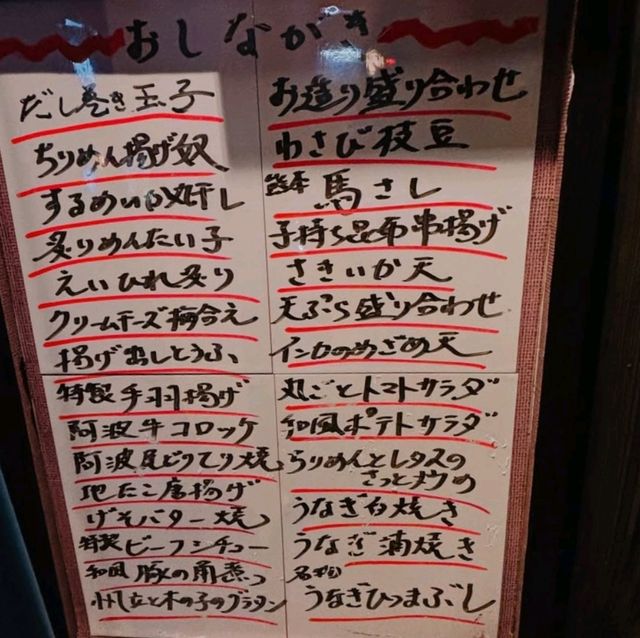 おしながき
だし巻き玉子
ちりめん揚げ奴
するめいか一夜干し
炙りめんたい子
えいひれ炙り
クリームチーズ梅合え
揚げ出しとうふ
特製手羽揚げ
阿波牛コロッケ
阿波尾どりてり焼
地たこ唐揚げ
げそバター焼
特製ビーフシチュー
和風豚の角煮
帆立と木の子のグラタン
お造り盛り合わせ
わさび枝豆
熊本馬さし
子持ち昆布串揚げ
さきいか天
天ぷら盛り合わせ
インカのめざめ天
丸ごとトマトサラダ
和風ポテトサラダ
ちりめんとレタスの
さっと炒め
うなぎ白焼き
うなぎ蒲焼き
名物
うなぎひつまぶし